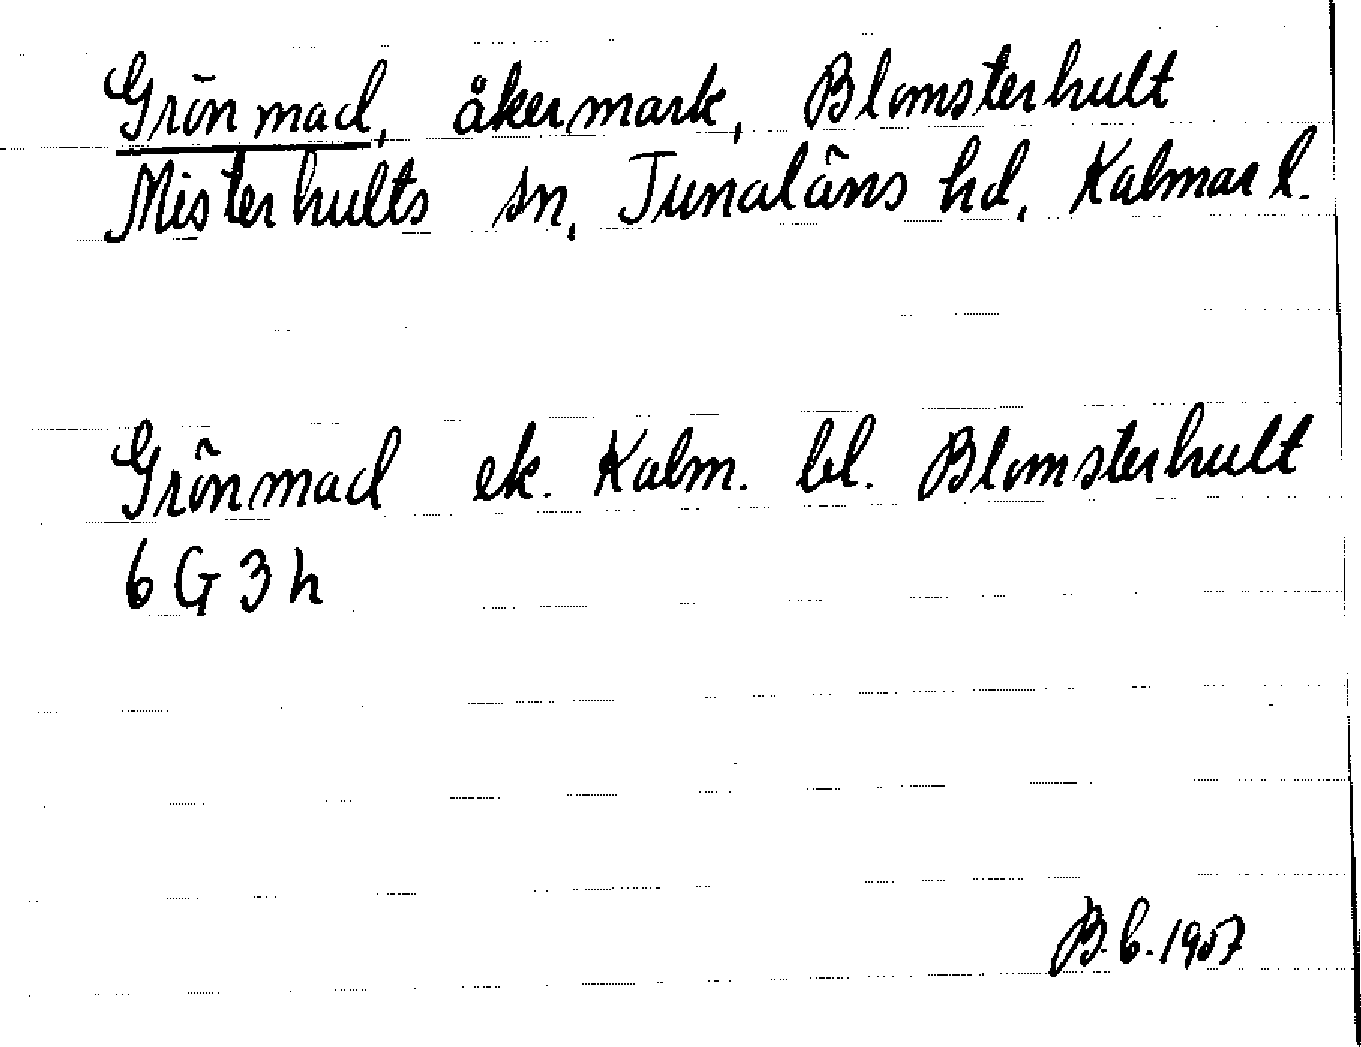 Grönmad, åkermark, Blomsterhult
Misterhults sn, Tunaläns hd, Kalmar l.
Grönmad ek. Kalm. bl. Blomsterhult
6 G 3 h
B.b. 1957